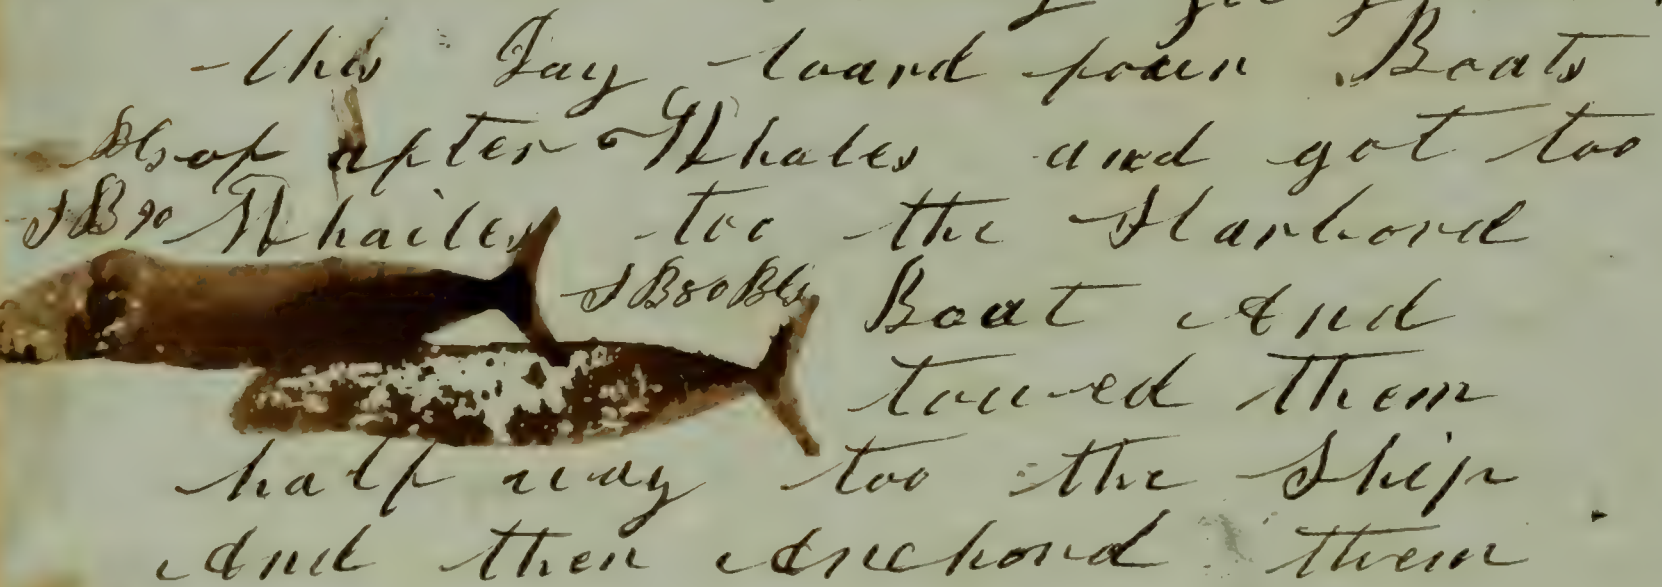 this Day loard four Boats
Bls of after Whales and got too
SB90 Whailes too the Starbord
SB80Bls Boat And
towed Them
half way too the Ship
And then Anchord them